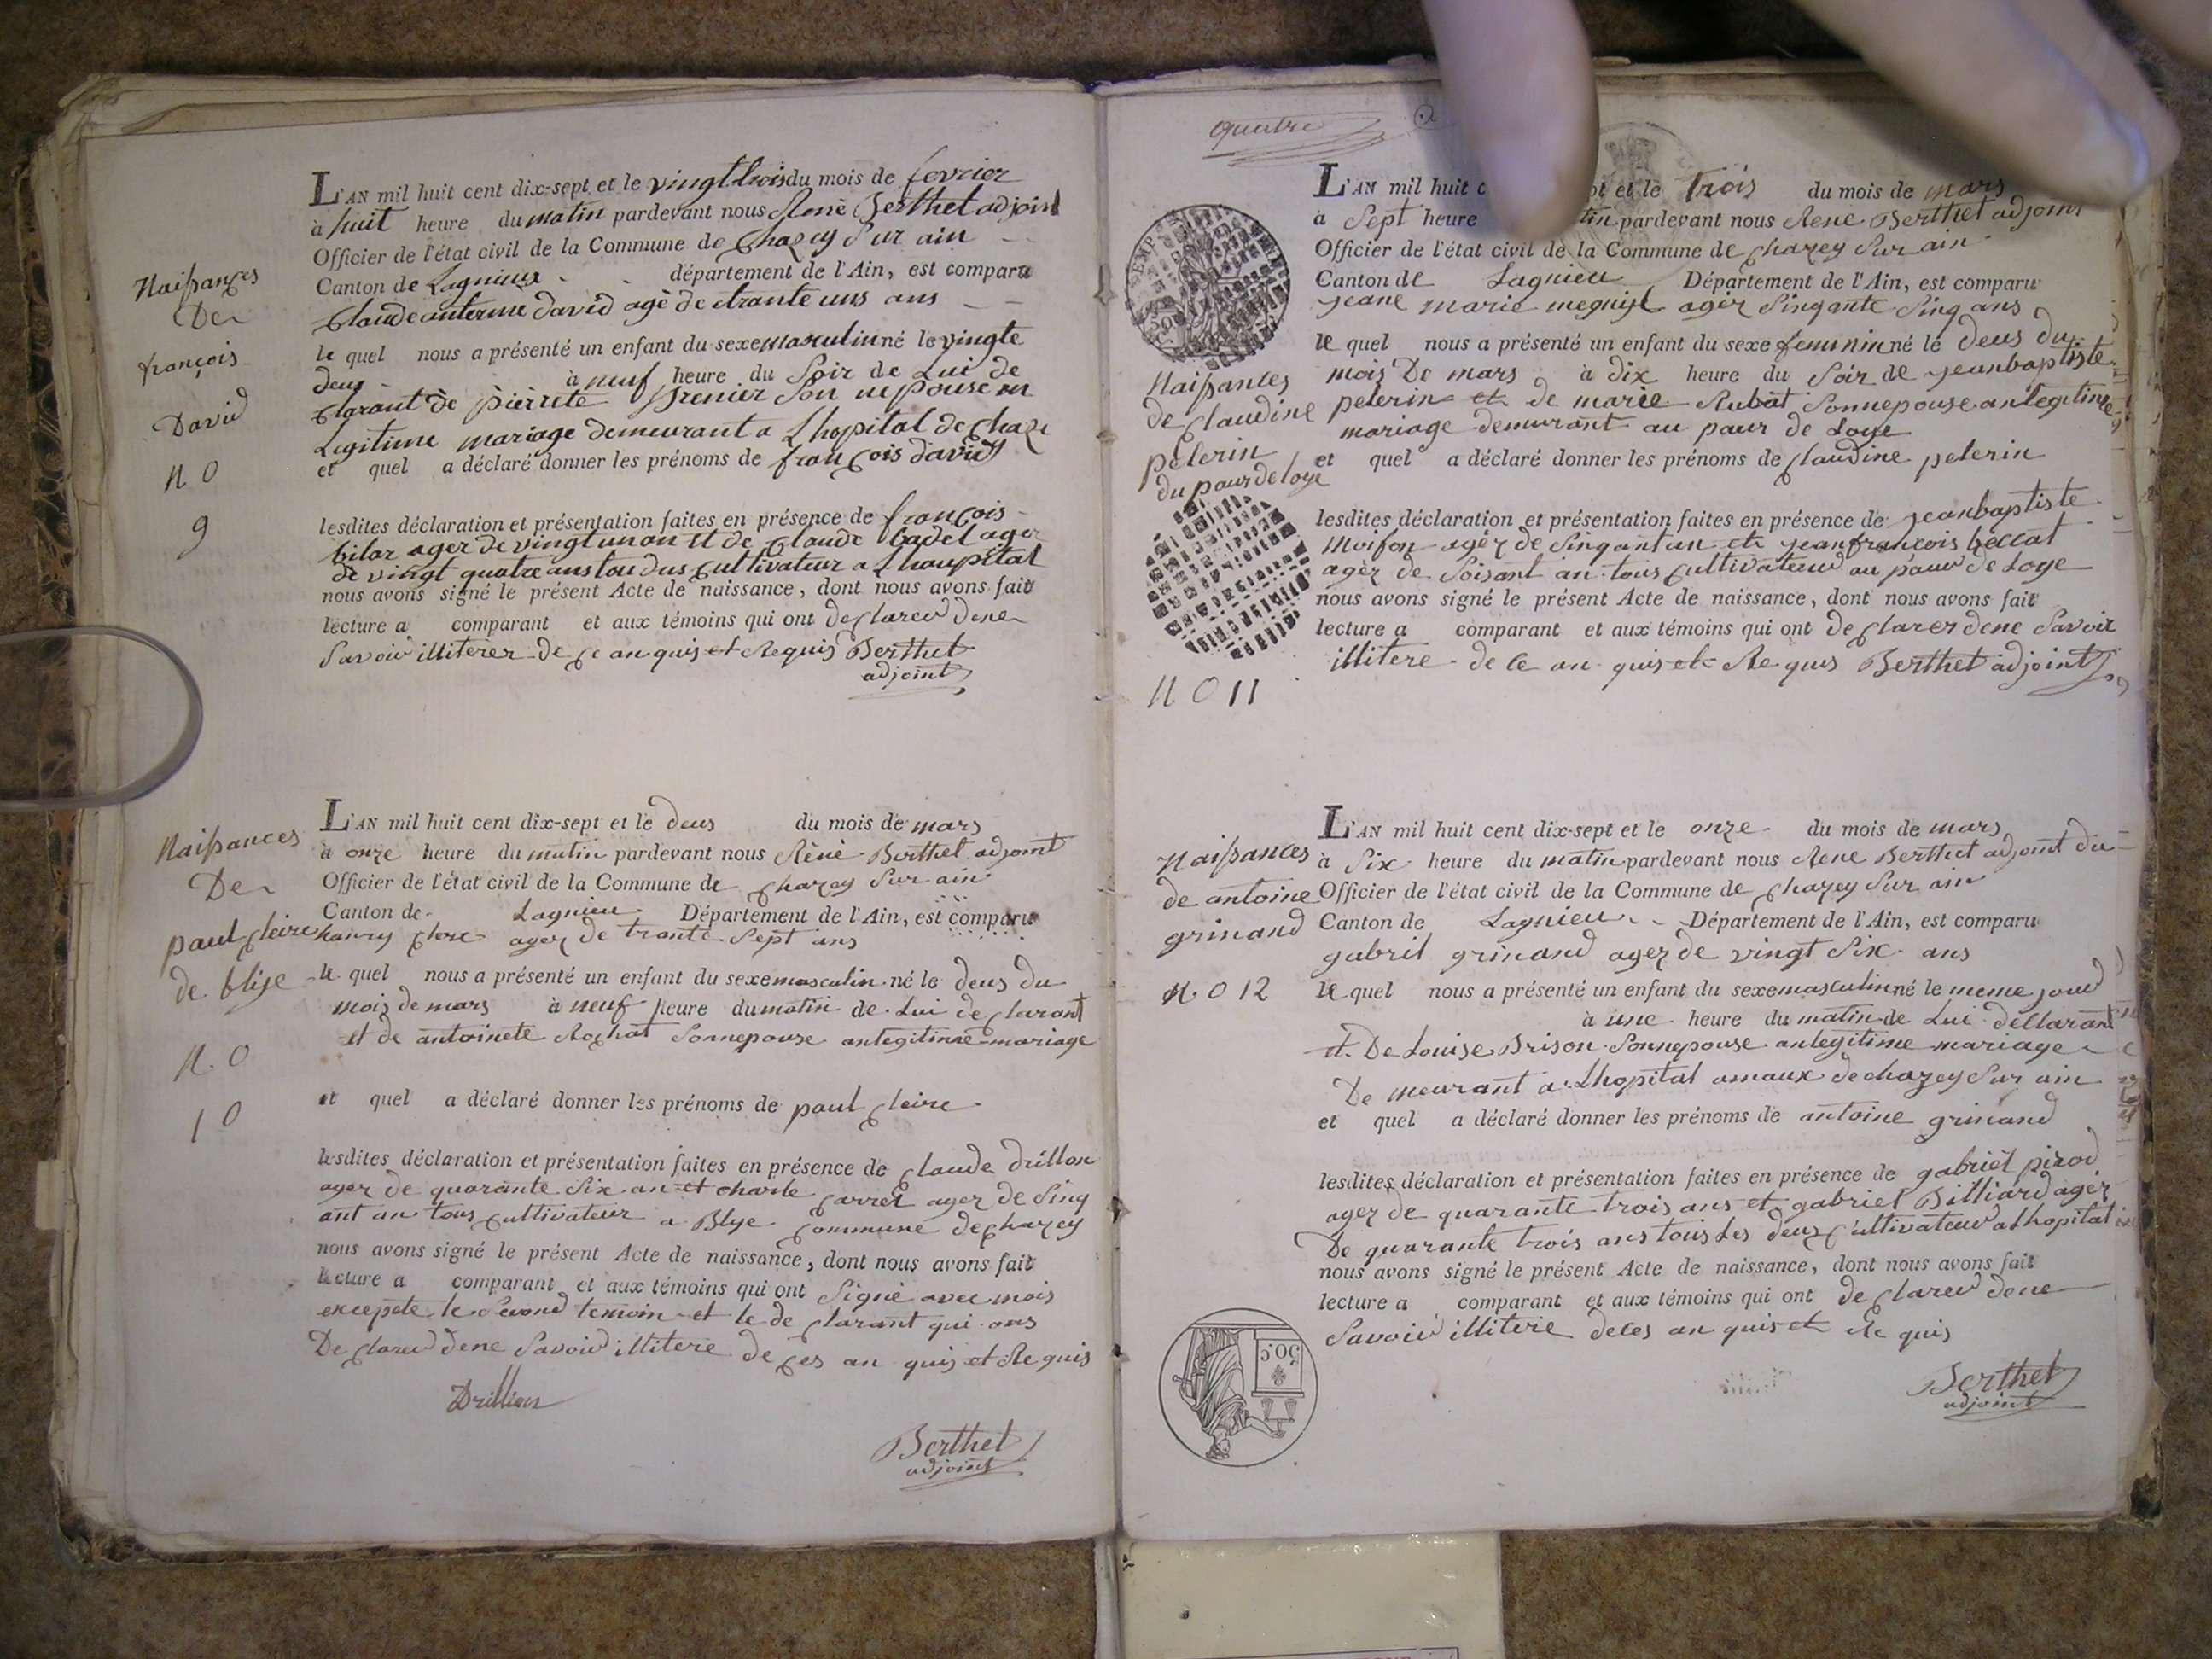 Naissances
De
françois
David
N O
9
L'AN mil huit cent dix-sept et le vingt trois du mois de fevrier
à huit heure du matin pardevant nous Renè Berthet adjoint
Officier de l'état civil de la Commune de Chazey Sur ain
Canton de Lagnieux département de l'Ain, est comparu
Claude anterme David agè de trante uns ans
le quel nous a présenté un enfant du sexe masculin né le vingte
deux à neuf heure du Soir de Lui de
clarant de pierrete Prenier Son nepouse en
Legitime mariage demeurant a Lhopital de chaze
et quel a déclaré donner les prénoms de francois david
lesdites déclaration et présentation faites en présence de francois
bilar ager de vingt un an et de Claude badel ager
de vingt quatre ans tou dus cultivateur a Lhaupital
nous avons signé le présent Acte de naissance, dont nous avons fait
lecture a comparant et aux témoins qui ont declareu dene
Savoir illiterer de ce an quis et Requis Berthet
adjoint
Naissances
De
paul cleire
de blije
N. O
10
L'AN mil huit cent dix-sept et le deus du mois de mars
à onze heure du matin pardevant nous Rènè Berthet adjoint
Officier de l'état civil de la Commune de chazey Sur ain
Canton de Lagnieu Département de l'Ain, est comparu
hanry clere ager de trante Sept ans
le quel nous a présenté un enfant du sexe masculin né le deus du
mois de mars à neuf heure du matin de Lui declarant
et de antoinete Rochat Sonnepouse antegitime mariage
et quel a déclaré donner les prénoms de paul cleire
lesdites déclaration et présentation faites en présence de claude drillon
ager de quarante Six an et charle carret ager de Sinq
ant an tous cultivateur a Blye commune dechazey
nous avons signé le présent Acte de naissance, dont nous avons fait
lecture a comparant et aux témoins qui ont Signe avec mois
excepete le Second temoin et le declarant qui ons
Declareu dene Savoir illitere de ces an quis et Requis
Drillion
Berthet
adjoint
quatre
Naissances
de claudine
pelerin
du paur de loye
N O 11
L'AN mil huit et le Trois du mois de mars
à Sept heure pardevant nous Rene Berthet adjoint
Officier de l'état civil de la Commune de chazey Sur ain
Canton de Lagnieu Département de l'Ain, est comparu
jeane marie ager Singante Sinq ans
le quel nous a présenté un enfant du sexe feminin né le deus du
mois De mars à dix heure du Soir de jeanbaptiste
pelerin et de marie Rubat Sonnepouse antegitime
mariage demurant au paur de Loye
et quel a déclaré donner les prénoms de claudine pelerin
lesdites déclaration et présentation faites en présence de jeanbaptiste
Moifon agèr de Singant an et jeanfrancois beccat
agèr de Soisant an tous cultivateur au paur de Loye
nous avons signé le présent Acte de naissance, dont nous avons fait
lecture a comparant et aux témoins qui ont declarer dene Savoir
illitere de ce an quis et Re quis Berthet adjoint
Naissances
de antoine
grinand
N. O 12
L'AN mil huit cent dix-sept et le onze du mois de mars
à Six heure du matin pardevant nous Rene Berthet adjoint du
Officier de l'état civil de la Commune de chazey Sur ain
Canton de Lagnieu Département de l'Ain, est comparu
gabril grinand ager de vingt Six ans
le quel nous a présenté un enfant du sexe masculin né le meme jour
à une heure du matin de Lui dellarant
et De Louise Brison Sonnepouse antegitime mariage
De meurant a Lhopital amaux de chazey Sur ain
et quel a déclaré donner les prénoms de antoine grinand
lesdites déclaration et présentation faites en présence de gabriel pirod
ager de quarante trois ans et gabriel Billiard ager
De quarante trois ans tous Les deus cultivateur a Lhopital
nous avons signé le présent Acte de naissance, dont nous avons fait
lecture a comparant et aux témoins qui ont declareu dene
Savoir illitere de ces an quis et Re quis
Berthet
adjoint
50 c